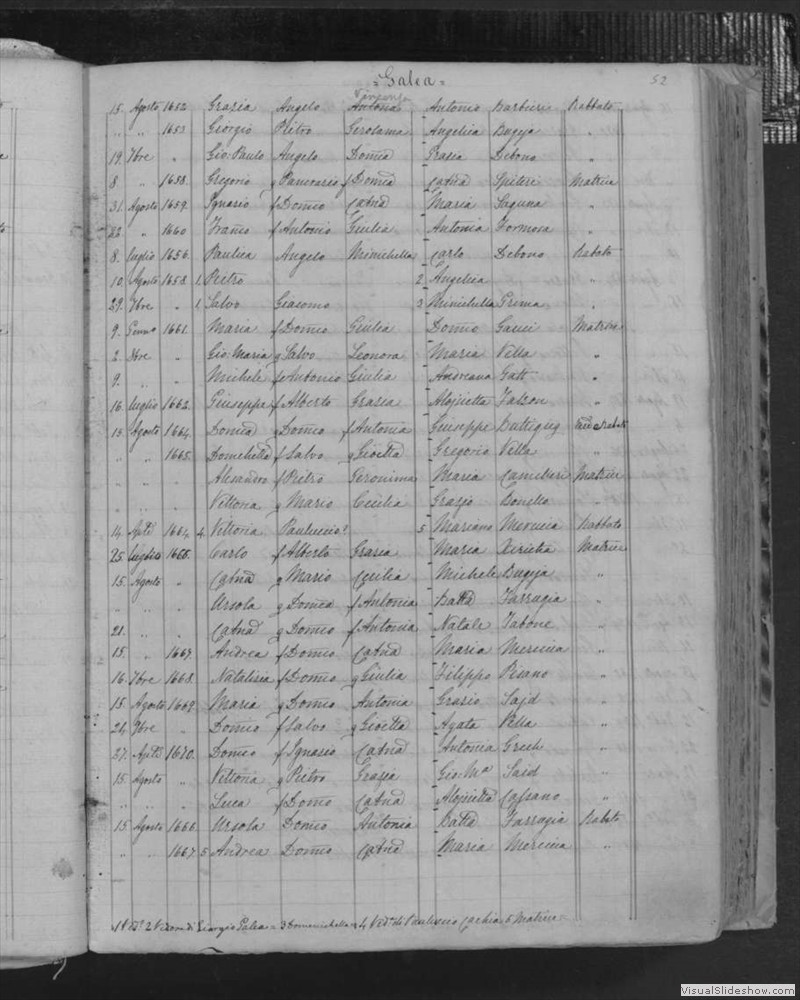 =Galea=
52
Vincenza
15. Agosto 1652. Grazia Angelo Antonia Antonio Barbieri Rabbato
" " 1653 Giorgio Pietro Gerolama Angelica Bugeja "
19. 7bre " Gio: Paulo Angelo Domca Grazia Debono "
8 " 1658. Gregorio q Pancrazio f Domca Catna Spiteri Matrice
31. Agosto 1659. Ignazio f Domco Catna Maria Laguna "
22. " 1660 f Antonio Giulia Antonia Formosa "
8. luglio 1656. Paulica Angelo Minichella Carlo Debono Rabato
10. Agosto 1658. 1. Pietro 2 Angelica "
29. 7bre " 1 Salvo Giacomo 3 Minichella Grima "
9. Genno 1661. Maria f Domco Giulia Domco Gauci Matrice
2. Gio: Maria q Salvo Leonora Maria Vella "
9. " " Michele f Antonio Giulia Andreana Gatt "
16. luglio 1662. Giuseppa f Alberto Grazia Alojsetta Falzon "
15. Agosto 1664. Domca q Domco f Antonia Giuseppe Buttigieg Rabato
" " 1665. Domchella f Salvo q Gioetta Gregorio Vella "
" " " Alesandro f Pietro Geronima Maria Camilleri Matrice
" " " Vittoria q Mario Cecilia Grazjo Bonello "
14. Aple 1664. 4. Vittoria Pauluccio? 5 Mariano Mercieca Rabbato
25. luglio 1665. Carlo f Alberto Grazia Maria Xiricha Matrice
15. Agosto " Catna q Mario Cecilia Michele Bugeja "
" " " Ursola q Domco f Antonia Batta Farrugia "
21. " " Catna q Domco f Antonia Natale Tabone "
15 " 1667. Andrea f Domco Catna Maria Mercieca "
16. 7bre 1668. Natalizia f Domco q Giulia Filippo Pisano "
15. Agosto 1669. Maria q Domco Antonia Grazio Sajd "
24. 7bre " Domco f Salvo q Gioetta Agata Vella "
27. Aple 1670. Domco f Ignazio Catna Antonia Grech "
15 Agosto " Vittoria q Pietro Grazia Gio: Ma Said "
" " " Luca f Domco Catna Alojsetta Cassano "
15 Agosto 1666. Ursola Domco Antonia Batta Farrugia Rabato
" " 1667. 5 Andrea Domco Catna Maria Mercieca "
1 Vedi 2 Vedova di Giorgio Galea = 3 Domenichella = 4 Veda di Pauluccio Cachia 5 Matrice =
VisualSlideshow.com